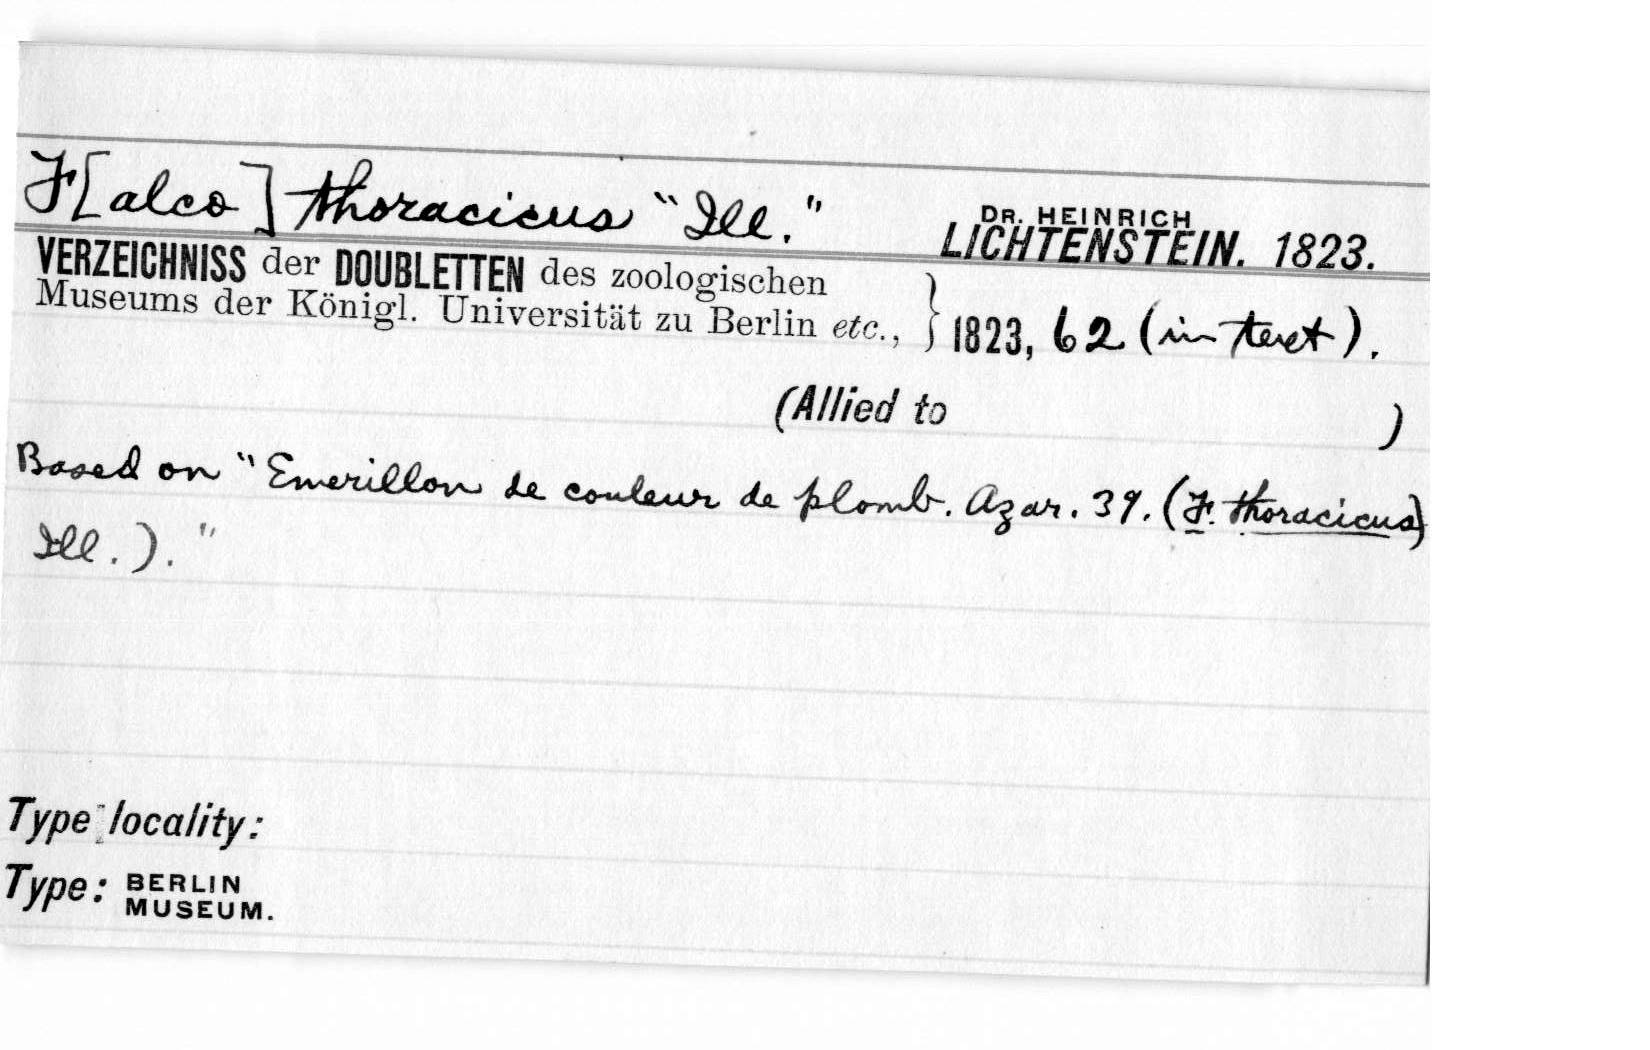 F[alco] thoracicus "Ill." DR. HEINRICH LICHTENSTEIN. 1823.
VERZEICHNISS der DOUBLETTEN des zoologischen
Museums der Königl. Universität zu Berlin etc., } 1823, 62 (in text).
(Allied to )
Based on "Emerillon de couleur de plomb. Azar. 39. (F. thoracicus
Ill.)."
Type locality:
Type: BERLIN
MUSEUM.